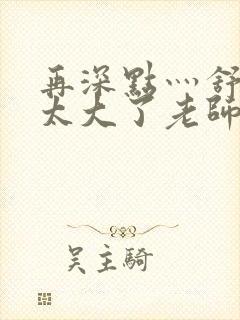 再深點灬舒
太大了老師
吴主騎